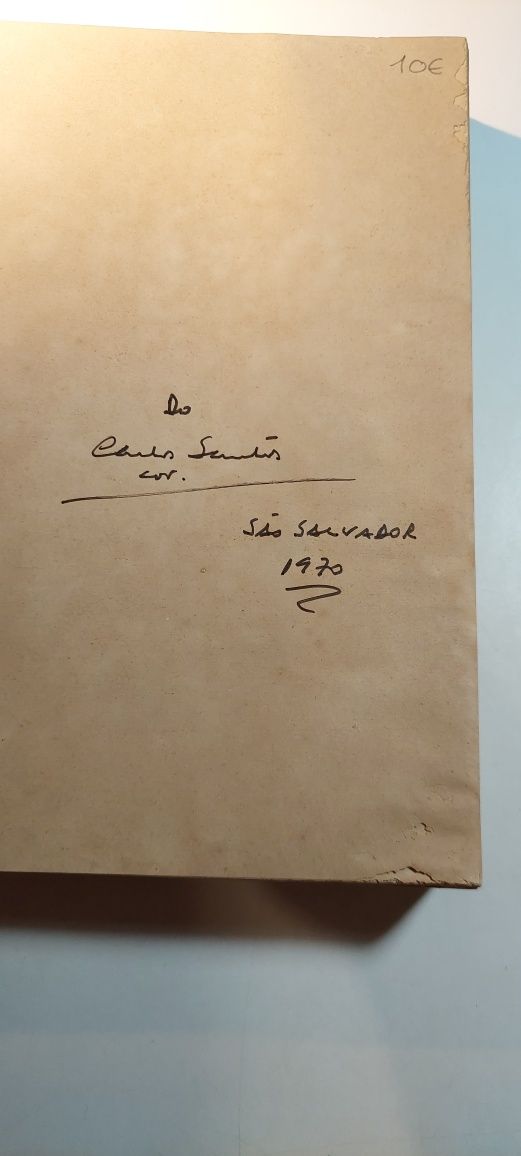 10€
Do
Carlos Santos
cor.
SÃO SALVADOR
1970